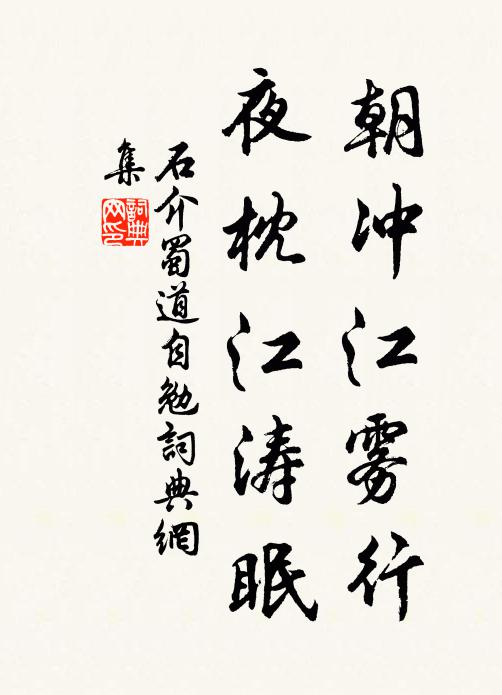 朝冲江雾行
夜枕江涛眠
石介蜀道自勉詞典網
集
詞典網印